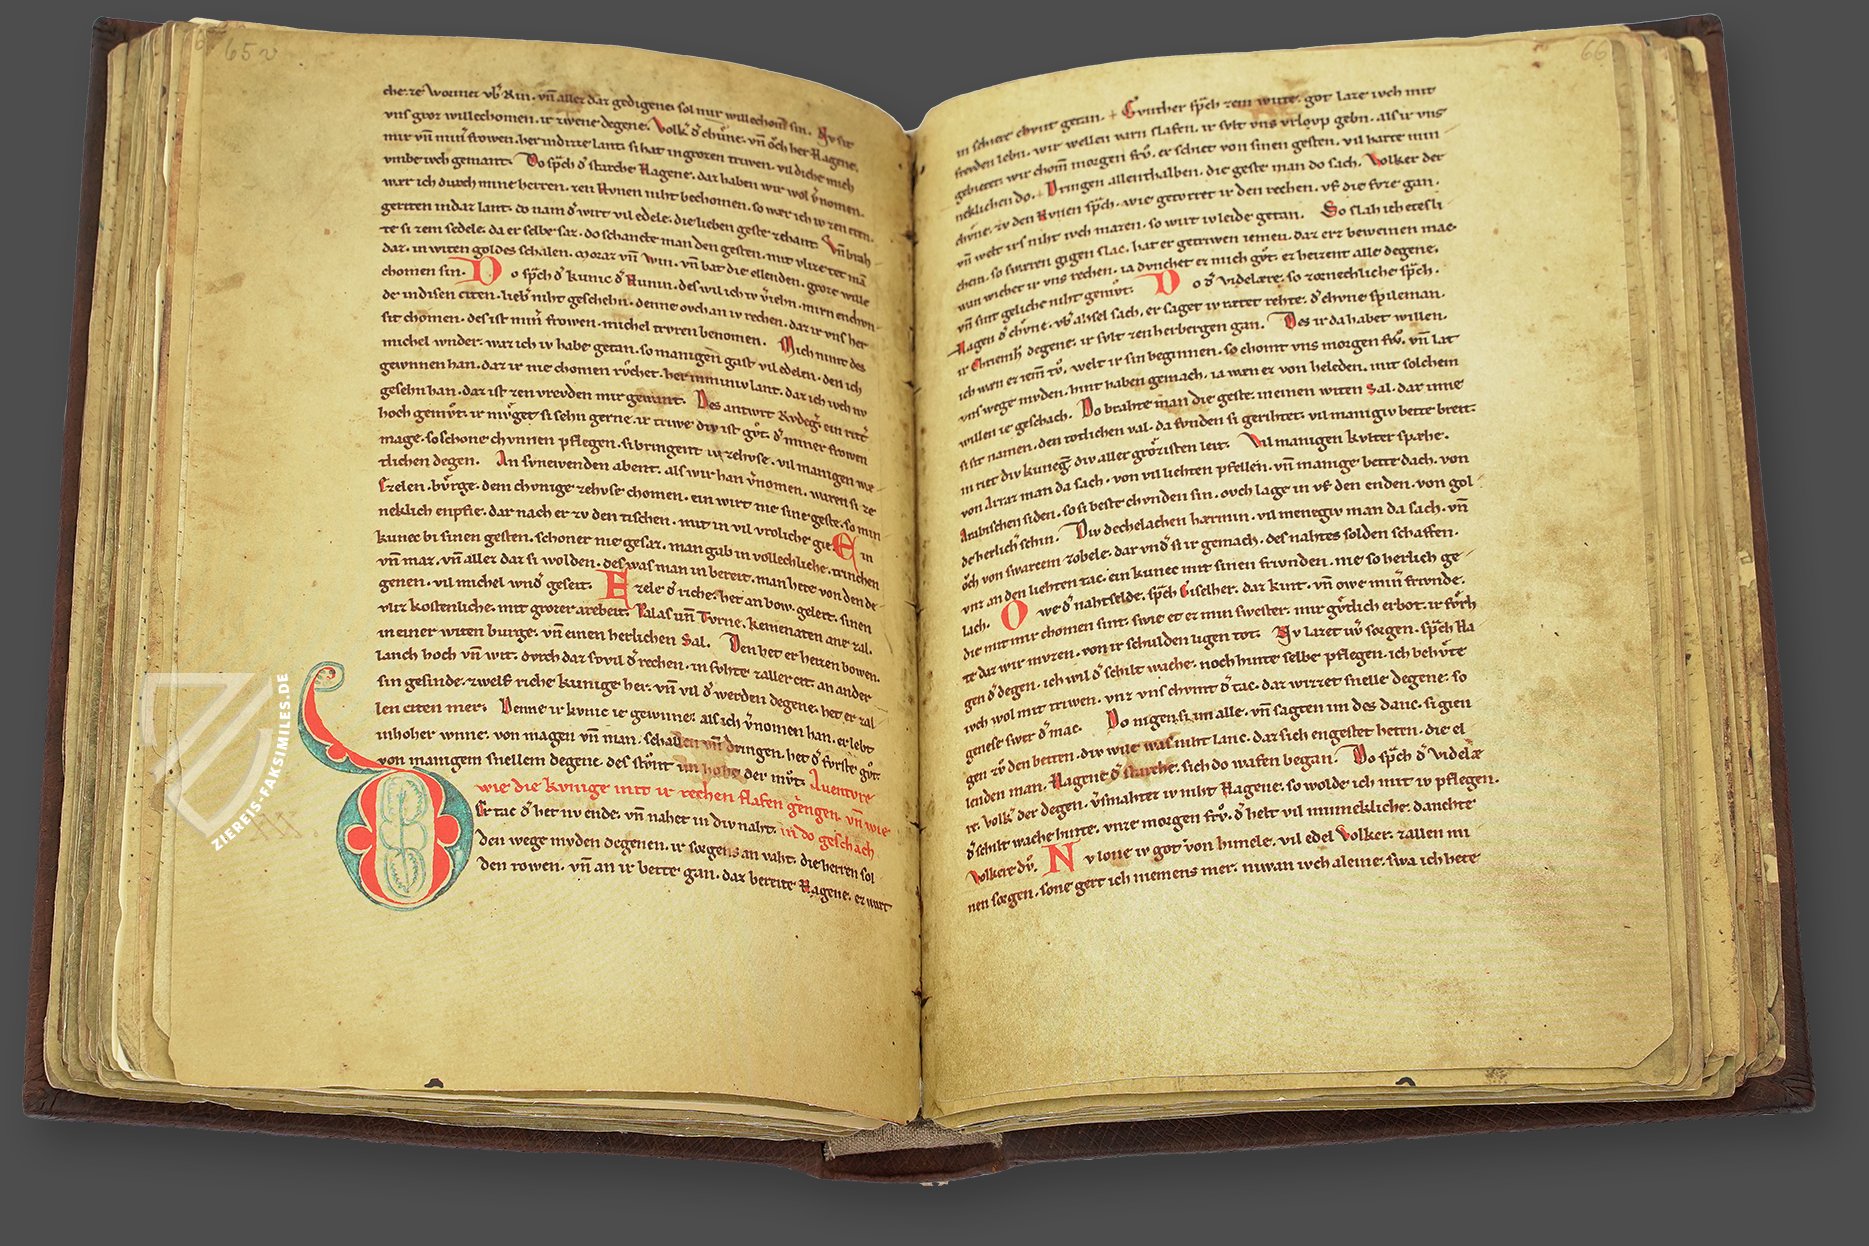 65v
che ze Wormez vb̾ Rin. vn̄ allez daz gedigene. sol mir willechom̄ sin. Ny sit
vns groz willechomen. ir zwene degene. Volk̾ d̾ chu̍ne. vn̄ o̍ch her Hagene.
mir vn̄ min̾ frowen. her indizze lant. si hat ingrozen triwen. vil diche mich
vmbe ivch gemant. Do sp̾ch d̾ starche Hagene. daz haben wir wol v̾nomen.
wær ich durch mine herren. zen Hvnen niht bechomen. so wær ich iv zen eren.
geriten in daz lant. do nam d̾ wirt vil edele. die lieben geste zehant. Vn̄ brah
te si zem sedele. da er selbe saz. do schancte man den gesten. mit vlize tet mā
daz. in witen goldes schalen. moraz vn̄ win. vn̄ bat die ellenden. groze wille
chomen sin. Do sp̾ch d̾ kunic d̾ Hunin. des wil ich iv v̾iehn. mirn chvn
de in disen citen. lieb̾ niht geschehn. denne ovch an iv rechen. daz ir vns her
sit chomen. des ist min̾ frowen. michel trvren benomen. Mich nimt des
michel wnder. waz ich iv habe getan. so manigen gast vil edelen. den ich
gewnnen han. daz ir nie chomen rv̊chet. her in miniv lant. daz ich ivch nv
gesehn han. daz ist zen vrevden mir gewant. Des antwrt Rv̊deg̾. ein ritt̾
hoch gemv̊t. ir mv̊get si sehn gerne. ir triwe div ist gv̊t. d̾ miner frowen
mage. so schone chvnnen pflegen. si bringent iv zehvse. vil manigen wæ
tlichen degen. An svnewenden abent. als wir han v̾nomen. waren si ze
Ezelen bu̍rge. dem chvnige zehvse chomen. ein wirt nie sine geste. so min
neklich enpfie. dar nach er zv den tischen. mit in vil vroliche gie. Ein
kunec bi sinen gesten. schoner nie gesaz. man gab in vollechliche. trinchen
vn̄ maz. vn̄ allez daz si wolden. des was man in bereit. man hete von den de
genen. vil michel wnd̾ geseit. Ezele d̾ riche. het an bow. geleit. sinen
vliz kostenliche. mit grozer arebeit. Palas vn̄ Tvrne. kemenaten ane zal.
in einer witen burge. vn̄ einen herlichen Sal. Den het er heizen bowen.
lanch hoch vn̄ wit. dvrch daz so vil d̾ rechen. in svhte zaller cit. an ander
sin gesinde. zwelf riche kunige her. vn̄ vil d̾ werden degene. het er zal
len citen mer. Denne ir kvnic ie gewnne. als ich v̾nomen han. er lebt
in hoher wnne. von magen vn̄ man. schallen vn̄ dringen. het d̾ fvrste gv̊t.
von manigem snellem degene. des stv̊nt im hohe der mv̊t. Auenture
wie die kvnige mit ir rechen slafen giengen. vn̄ wie
Der tac d̾ het nv ende. vn̄ nahet in div naht. in do geschach
den wege mvden degenen. ir sorgen an vaht. die herren sol
den rowen. vn̄ an ir bette gan. daz bereite Hagene. ez wart
66
in schiere chvnt getan. Gvnther sp̾ch zem wirte. got laze ivch mit
frevden lebn. wir wellen varn slafen. ir svlt vns vrlovp gebn. als ir vns
gebietet. wir chom̄ morgen frv̊. er schiet von sinen gesten. vil harte min
neklichen do. Dringen allenthalben. die geste man do sach. Volker der
chv̊ne. zv den Hvnen sp̾ch. wie getvrret ir den rechen. vf die fvze gan.
vn̄ welt irs niht ivch mazen. so wirt iv leide getan. So slah ich etesli
chen. so swæren gigen slac. hat er getriwen iemen. daz erz beweinen mac.
wan wichet ir vns rechen. ia dvnchet ez mich gv̊t. ez heizent alle degene.
vn̄ sint geliche niht gemv̊t. Do d̾ videlære. so zornechliche sp̾ch.
Hagen d̾ chv̊ne. vb̾ ahsel sach. er saget iv rætet rehte. d̾ chvne spileman.
ir Chriemh̾ degene. ir svlt zen herbergen gan. Des ir da habet willen.
ich wæn ez iem̄ tv̊. welt ir sin beginnen. so chomt vns morgen frv̊. vn̄ lat
vns wege mvden. hint haben gemach. ia wæn ez von heleden. mit solchem
willen ie geschach. Do brahte man die geste. in einen witen Sal. daz inne
si sit namen. den totlichen val. da fvnden si gerihtet. vil manigiv bette breit.
in riet div kuneg̾. div aller gro̍zisten leit. Vil manigen kvlter spæhe.
von Arraz man da sach. von vil liehten pfellen. vn̄ manige bette dach. von
Arabischen siden. so si beste chvnden sin. ovch lage in vf den enden. von gol
de herlich̾ schin. Div dechelachen hærmin. vil menegiv man da sach. vn̄
o̍ch von swarcem zobele. dar vnd̾ si ir gemach. des nahtes solden schaffen.
vnz an den liehten tac. ein kunec mit sinen frivnden. nie so herlich ge
lach. Owe d̾ nahtselde. sp̾ch Giselher. daz kint. vn̄ owe min̾ frivnde.
die mit mir chomen sint. swie et ez min swester. mir gv̊tlich erbot. ir fo̍rh
te daz wir mvzen. von ir schulden ligen tot. Nv lazet iw̾ sorgen. sp̾ch Ha
gen d̾ degen. ich wil d̾ schilt wache. noch hinte selbe pflegen. ich behv̊te
ivch wol mit triwen. vnz vns chvmt d̾ tac. daz wizzet snelle degene. so
genese swer d̾ mac. Do nigen si im alle. vn̄ sagten im des danc. si gien
gen zv̊ den betten. div wile was niht lanc. daz sich engestet heten. die el
lenden man. Hagene d̾ starche. sich do wafen began. Do sp̾ch d̾ videlæ
re. volk̾ der degen. v̾smahtez iv niht Hagene. so wolde ich mit iv pflegen.
d̾ schilt wache hinte. vnze morgen frv̊. d̾ helt vil minnekliche. danchte
Volkere dv̊. Nv lone iv got von himele. vil edel Volker. zallen mi
nen sorgen. sone gert ich niemens mer. niwan ivch aleine. swa ich hete
ZIEREIS-FAKSIMILES.DE